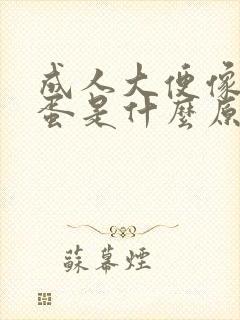 成人大便像
蛋是什麼原
蘇幕煙